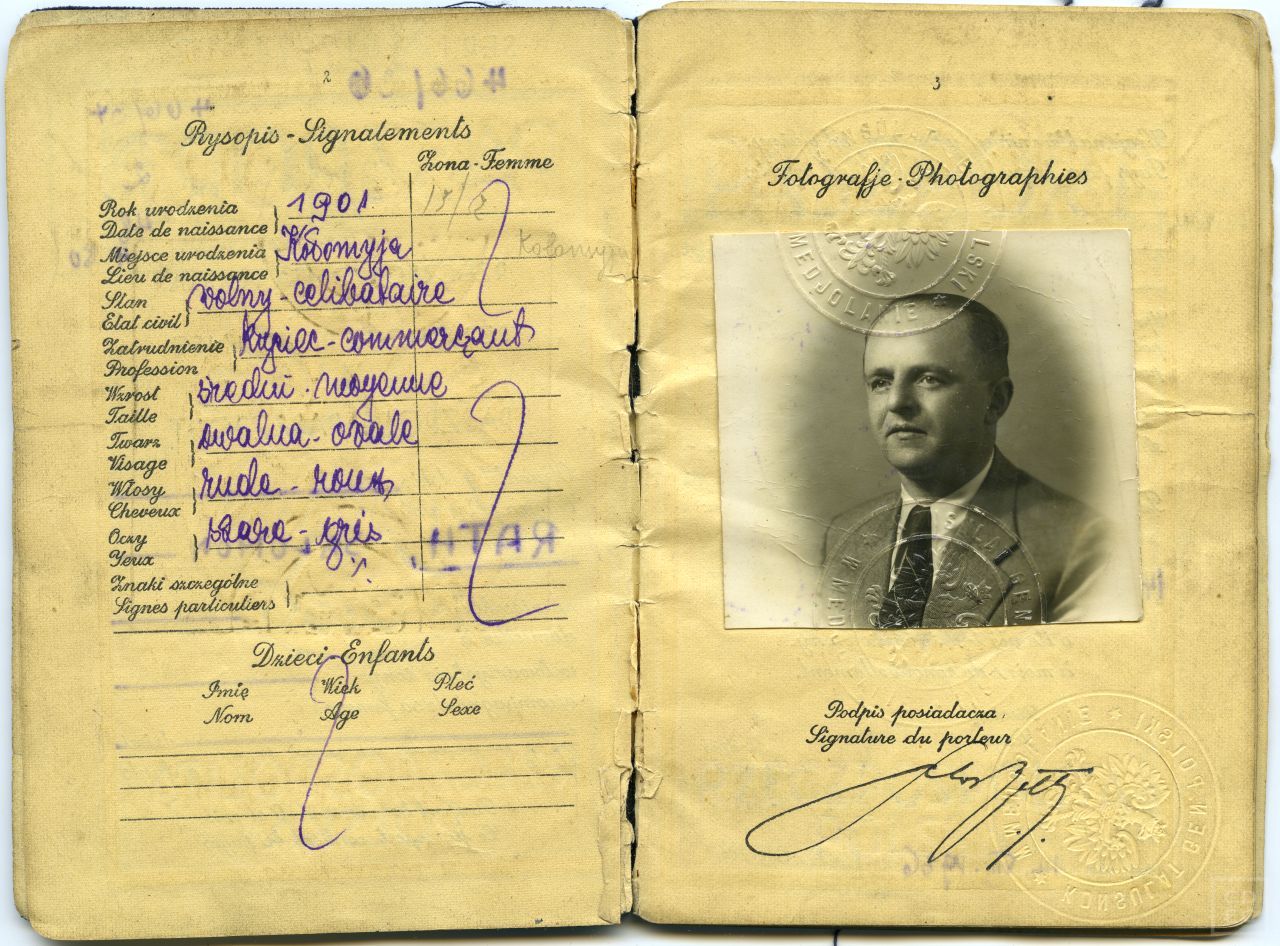 2
Rysopis - Signalements
Żona - Femme
Rok urodzenia
Date de naissance
1901
Miejsce urodzenia
Lieu de naissance
Kołomyja
Kołomyja
Stan
Etat civil
wolny - celibataire
Zatrudnienie
Profession
Kupiec - commerçant
Wzrost
Taille
średni - moyenne
Twarz
Visage
owalna - ovale
Włosy
Cheveux
rude - roux
Oczy
Yeux
szare - gris
Znaki szczególne
Signes particuliers
Dzieci - Enfants
Imię Wiek Płeć
Nom Age Sexe
3
Fotografje - Photographies
MEDJOLANIE
Podpis posiadacza
Signature du porteur